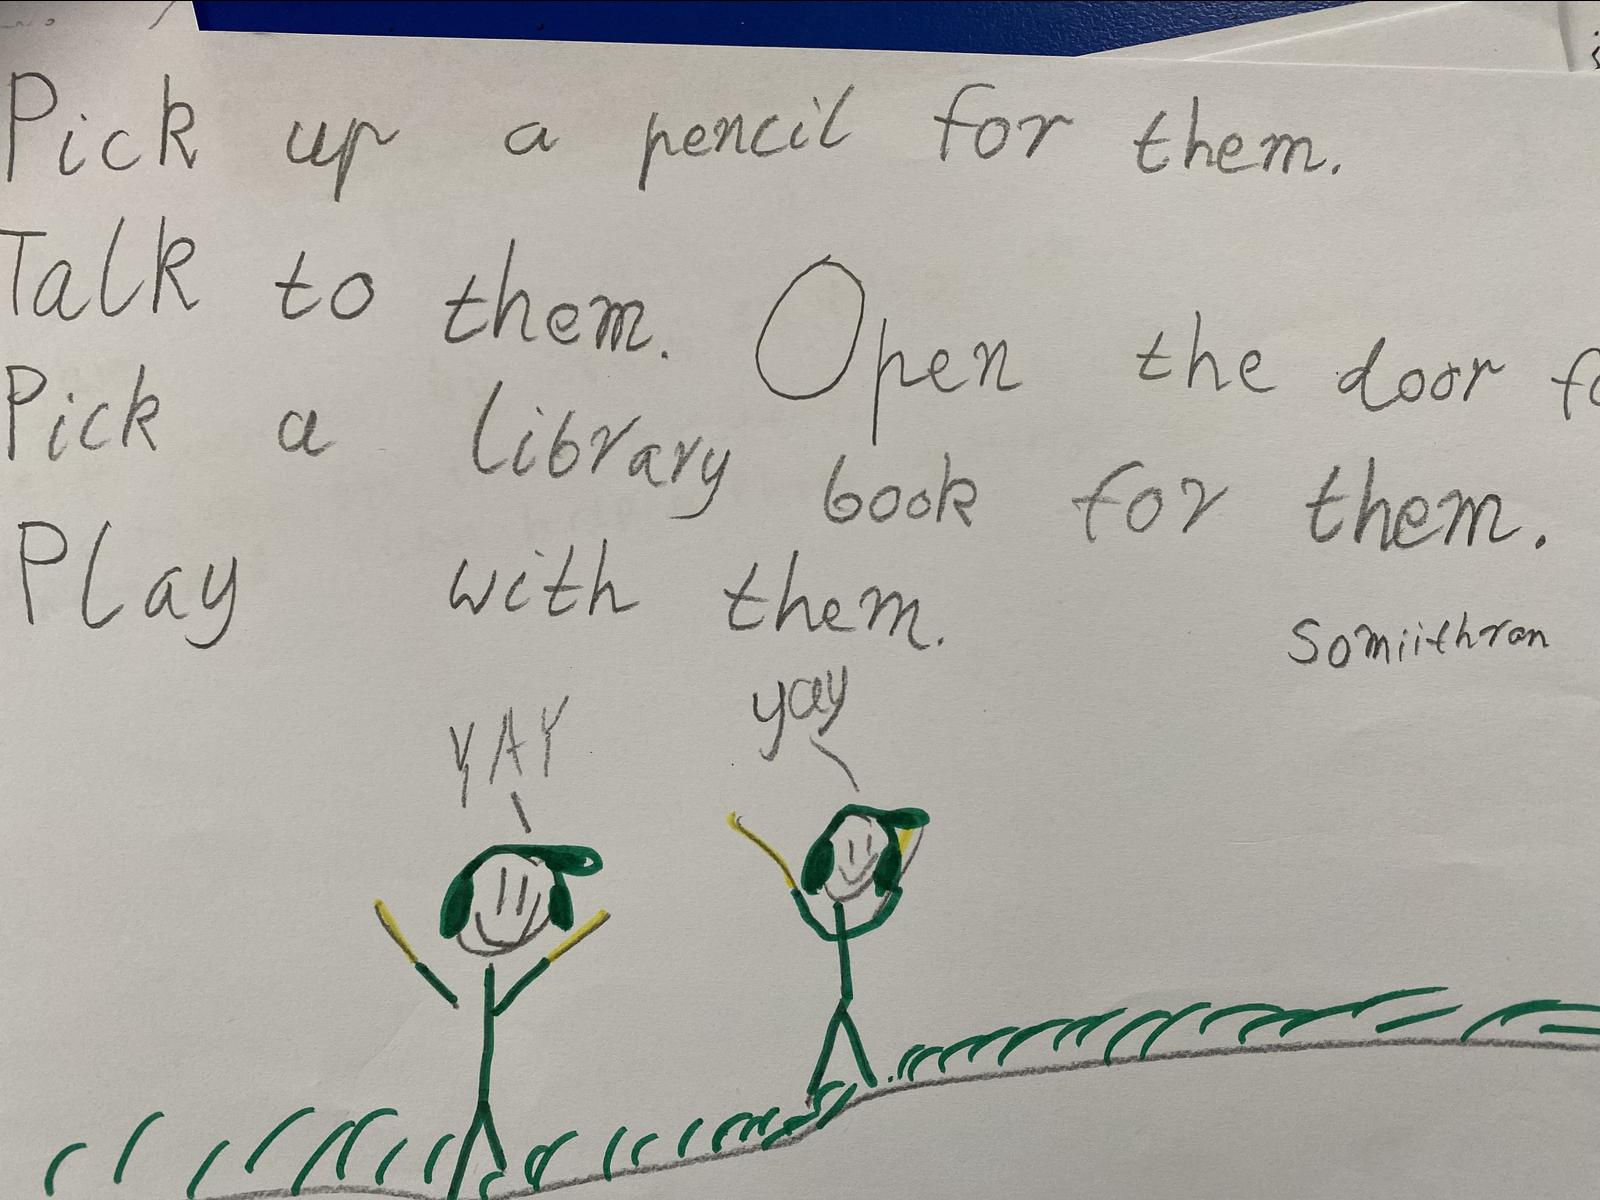 Pick up a pencil for them.
Talk to them. Open the door fo
Pick a library book for them.
Play with them.
Somiithran
YAY
yay